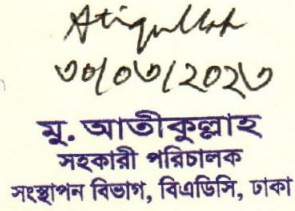 Atiqullah
৩০/০৩/২০২৩
মু. আতীকুল্লাহ
সহকারী পরিচালক
সংস্থাপন বিভাগ, বিএডিসি, ঢাকা